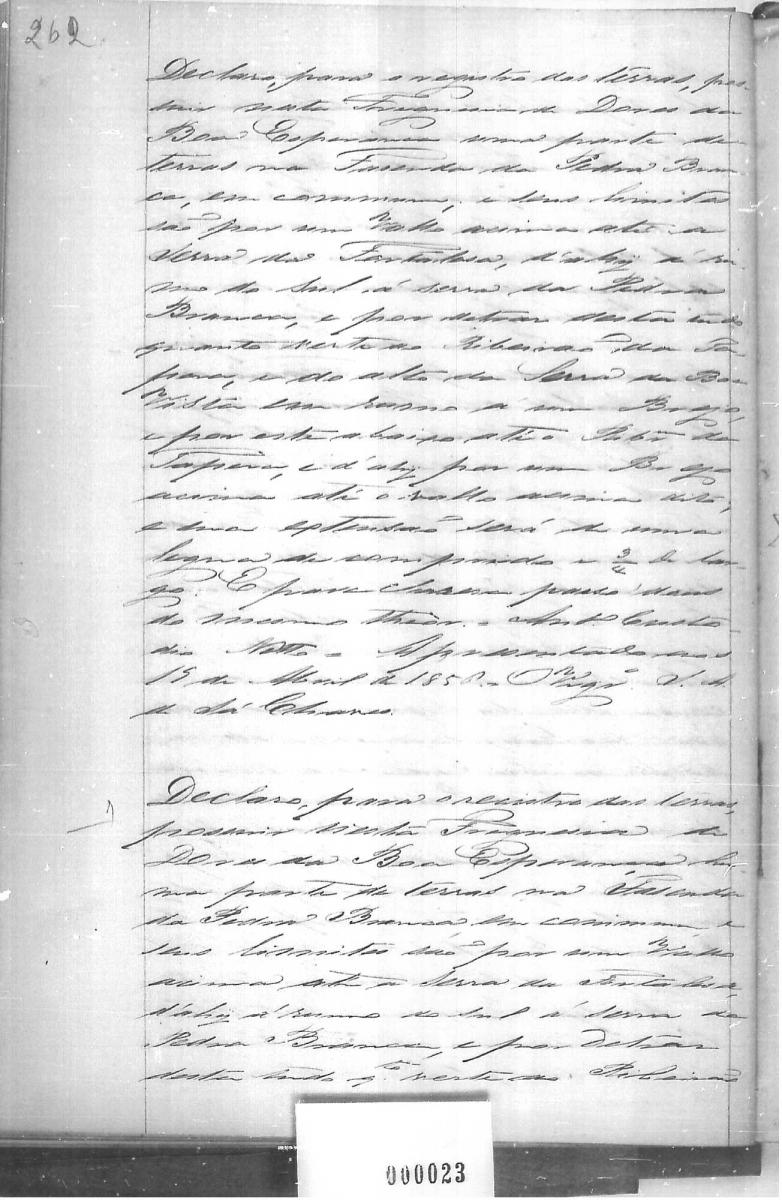 262
Declaro, para o registro das terras, pos-
suir nesta Freguesia de Dores da
Boa Esperança uma parte de
terras na Fazenda da Pedra Bran-
ca, em commum, e seus limites
são por um Vallo acima até a
Serra da Fortalesa, d'ahy á ru-
mo do Sul, á serra da Pedra
Branca, e por detras desta tudo
quanto verte ao Ribeirão da Ta-
pera, e do alto da Serra da Boa
Vista em rumo a um Brejo,
e por este abaixo até o Ribr.º da
Tapera, e d'ahy por um Brejo
acima até o vallo acima dito,
e sua extensão será de uma
legua de comprido e 3/4 de lar-
go. E para clareza passo dous
do mesmo theor. Ant.º Custo-
dio Netto. Apresentado aos
15 de Abril de 1856. O Vigr.º J. A.
de Sá Chaves.
Declaro, para o registro das terras,
possuir nesta Freguesia de
Dores da Boa Esperança hu-
ma parte de terras na Fazenda
da Pedra Branca em commum, e
seus limites são por um Vallo
acima até a Serra da Fortalesa,
d'ahy á rumo do Sul á serra da
Pedra Branca, e por detras
desta tudo q.to verte ao Ribeirão
000023